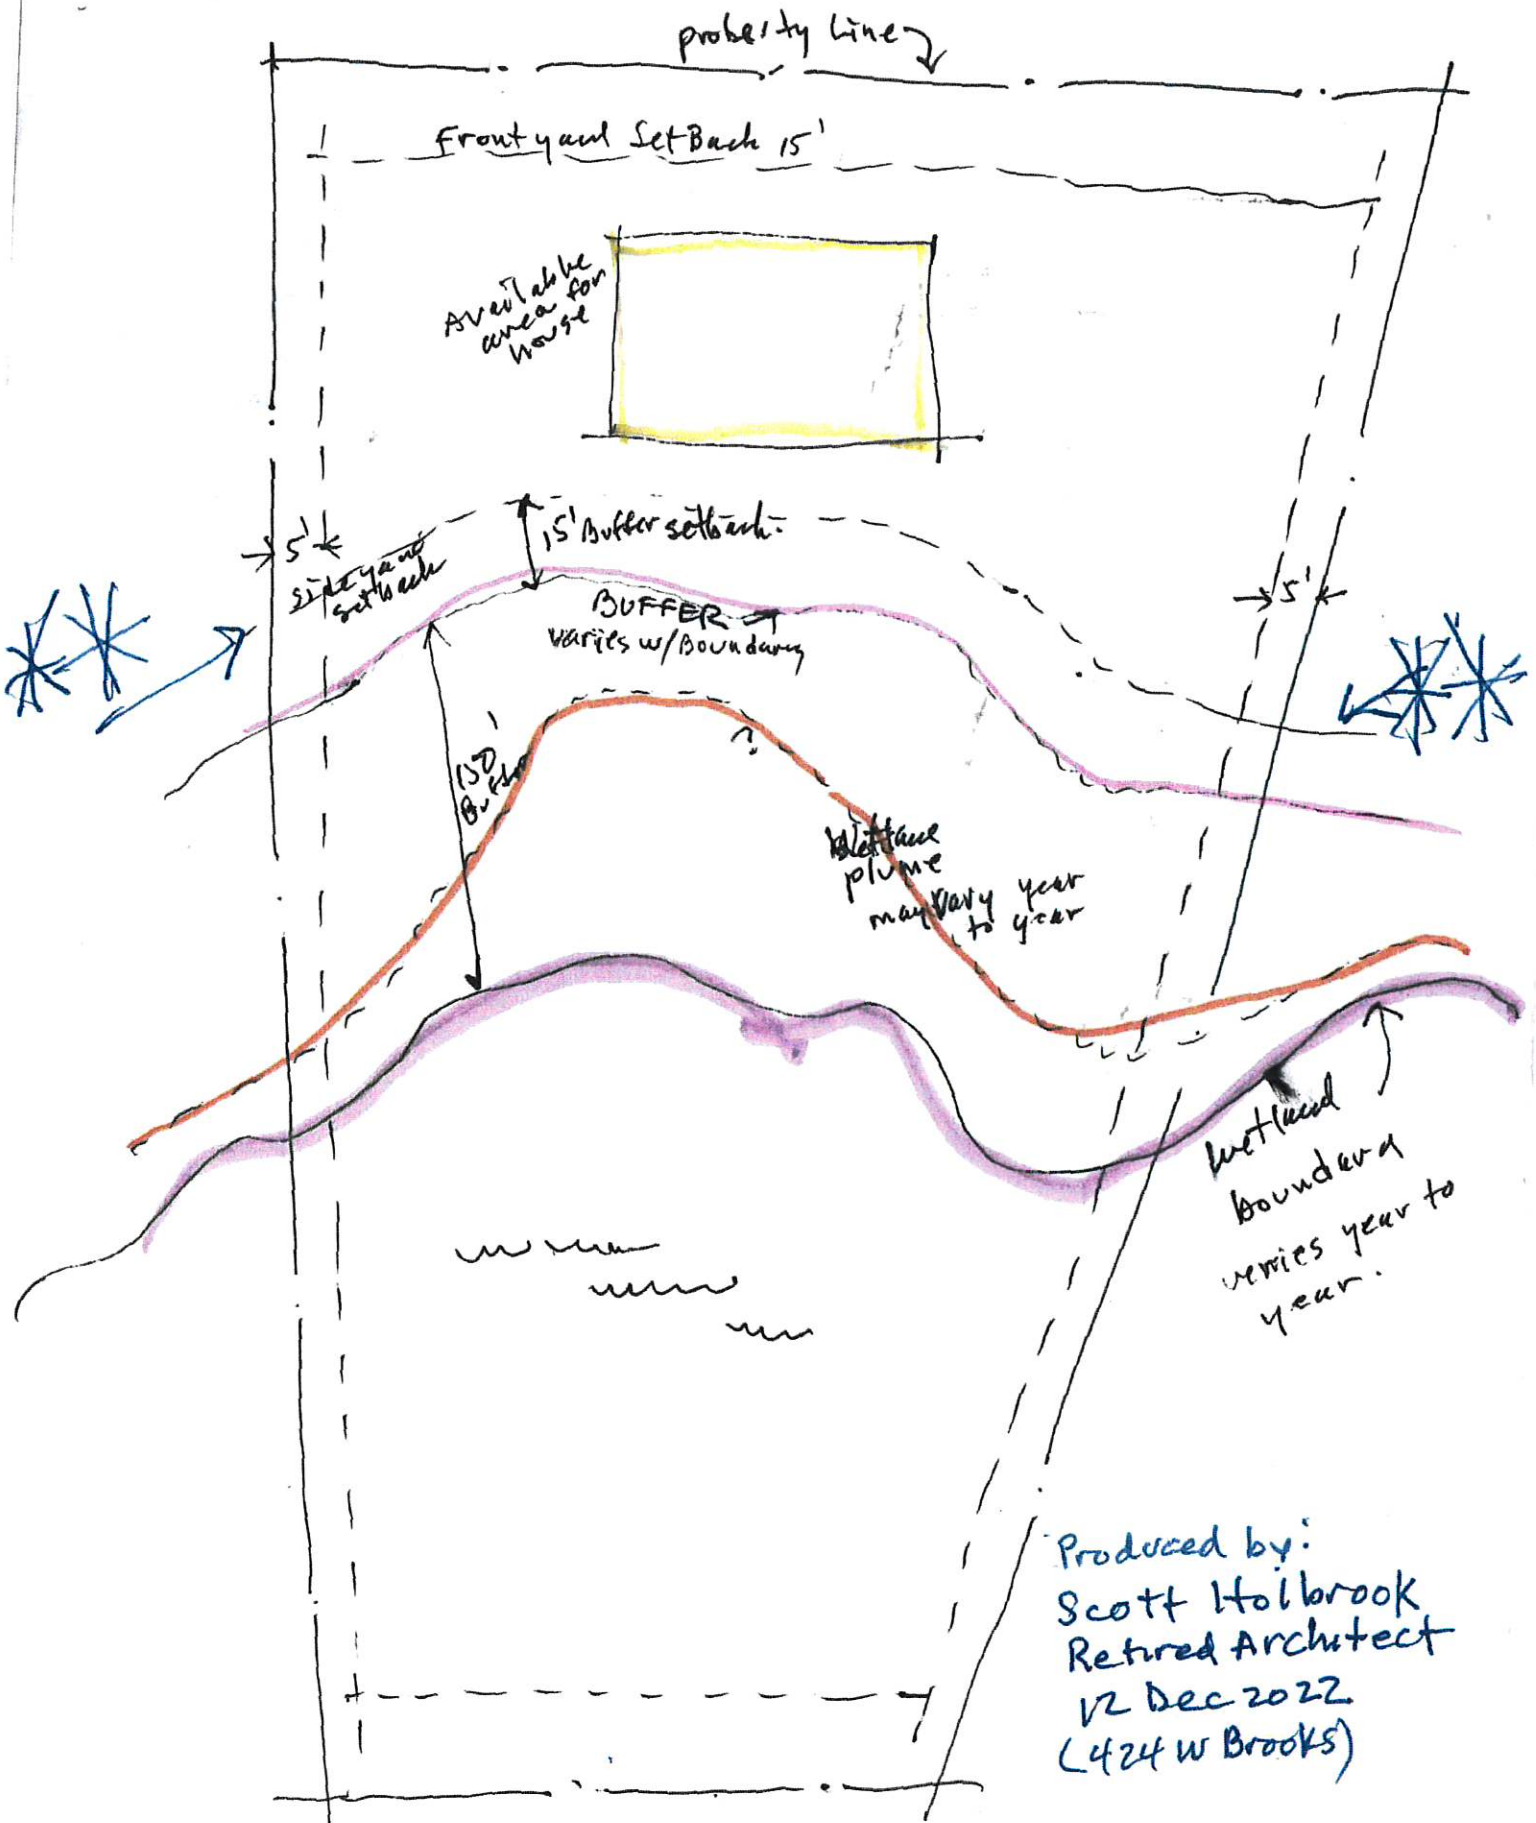 property Line
Frontyard SetBack 15'
Available
area for
house
15' Buffer setback
5'
side yard
setback
5'
BUFFER
varies w/Boundary
150'
Buffer
?
Wetland
plume
may vary year
to year
wetland
boundary
verries year to
year.
Produced by:
Scott Holbrook
Retired Architect
12 Dec 2022
(424 W Brooks)